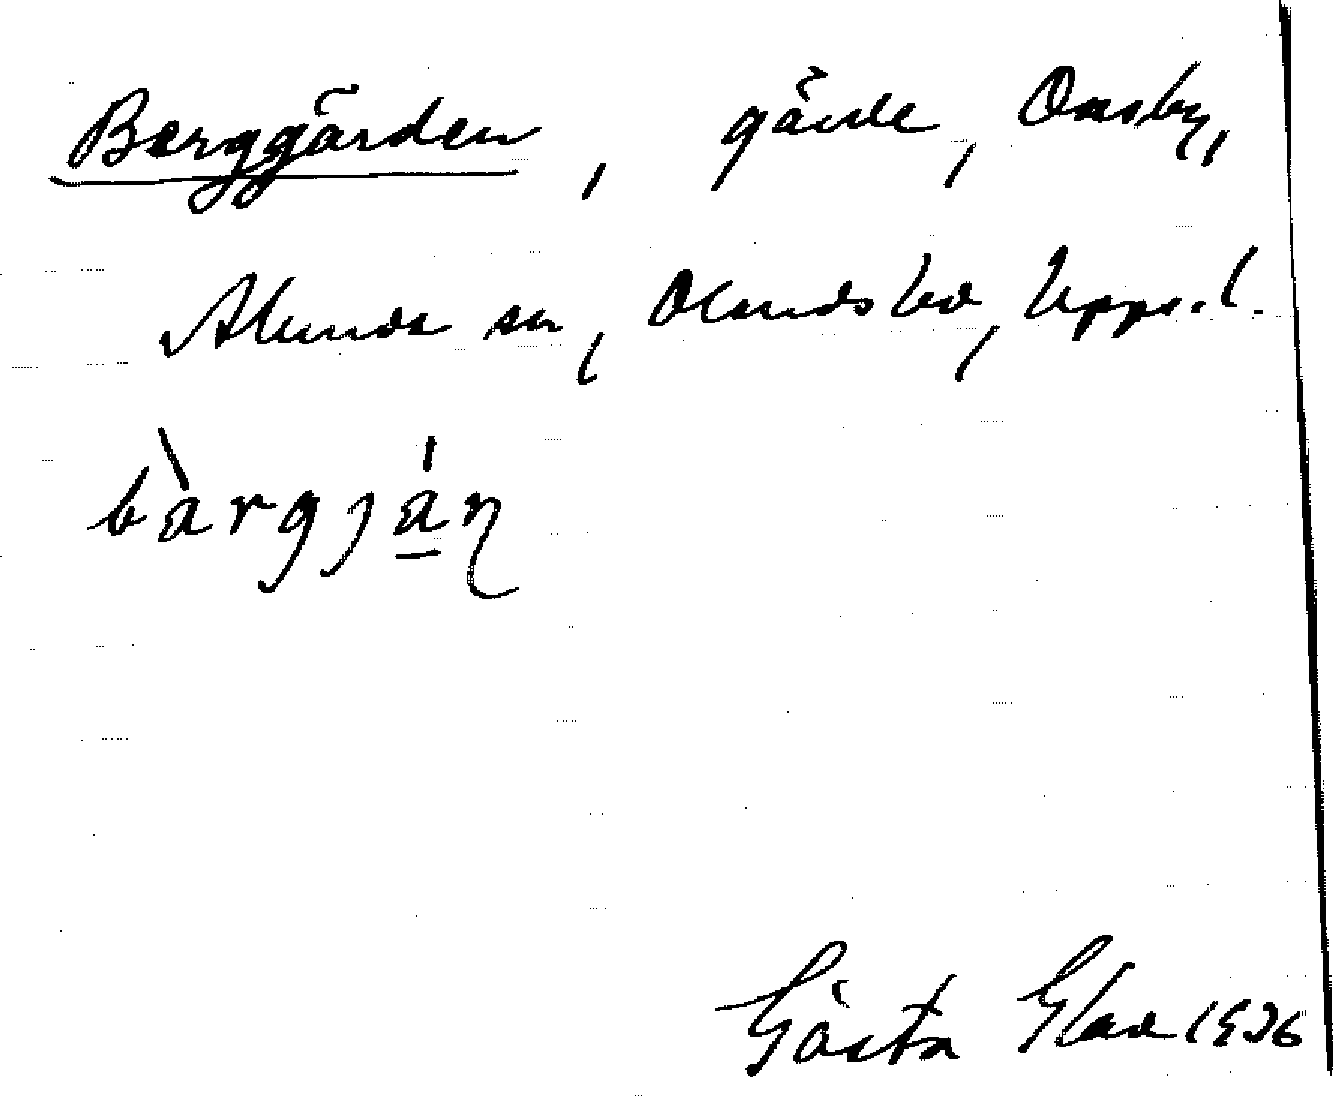 Berggärden, gärde, Onsby,
Alunda sn, Olands hd, Uppl.
bàrgjá̲ɳ
Gösta 1936